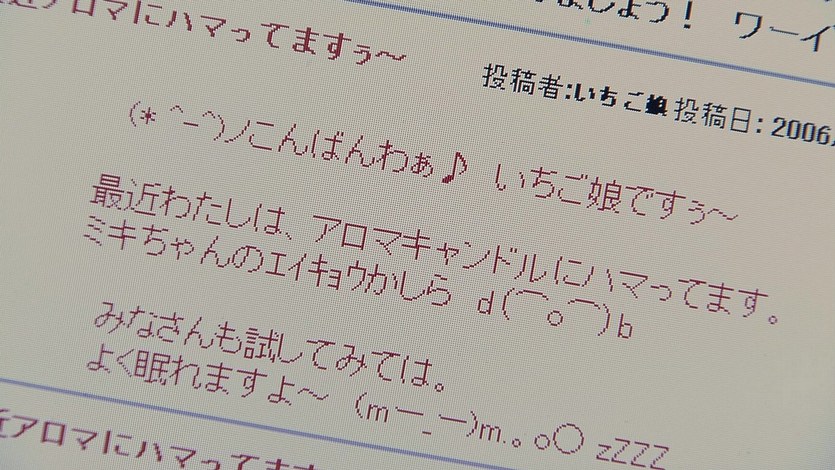 ましょう! ワーイ
近アロマにハマってますぅ～
投稿者:いちご娘 投稿日: 2006
(* ^-^)ノこんばんわぁ♪ いちご娘ですぅ～
最近わたしは、アロマキャンドルにハマってます。
ミキちゃんのエイキョウかしら d(⌒o⌒)b
みなさんも試してみては。
よく眠れますよ～ (m ー_ー)m.。o○ zZZZ
近アロマにハマってます